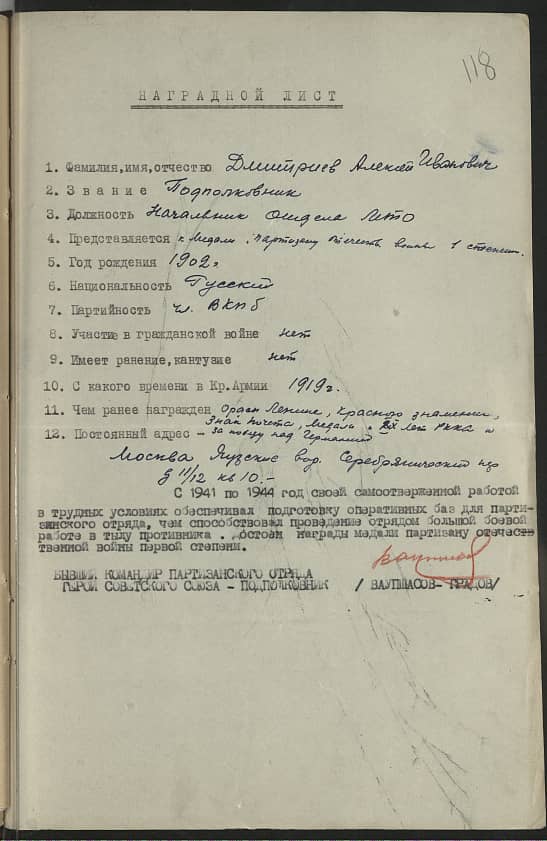 118
НАГРАДНОЙ ЛИСТ
1. Фамилия,имя,отчество Дмитриев Алексей Иванович
2. Звание Подполковник
3. Должность Начальник отдела
4. Представляется к медали "Партизану отечеств войны 1 степени.
5. Год рождения 1902г
6. Национальность Русский
7. Партийность чл. ВКПб
8. Участие в гражданской войне нет
9. Имеет ранение,кантузие нет
10. С какого времени в Кр.Армии 1919г.
11. Чем ранее награжден орден Ленина, Красного знамении,
Знак почета, Медали XX лет РККА и
12. Постоянный адрес – за победу над Германией
Москва Яузские вор. Серебрянический пер
д 11/12 кв 10.-
С 1941 по 1944 год своей самоотверженной работой
в трудных условиях обеспечивал подготовку оперативных баз для парти-
занского отряда, чем способствовал проведение отрядом большой боевой
работе в тылу противника . достоен награды медали партизану отечест=
твенной войны первой степени.
БЫВШИЙ КОМАНДИР ПАРТИЗАНСКОГО ОТРЯДА
ГЕРОЙ СОВЕТСКОГО СОЮЗА - ПОДПОЛКОВНИК / ВАУПШАСОВ- ГРАДОВ/